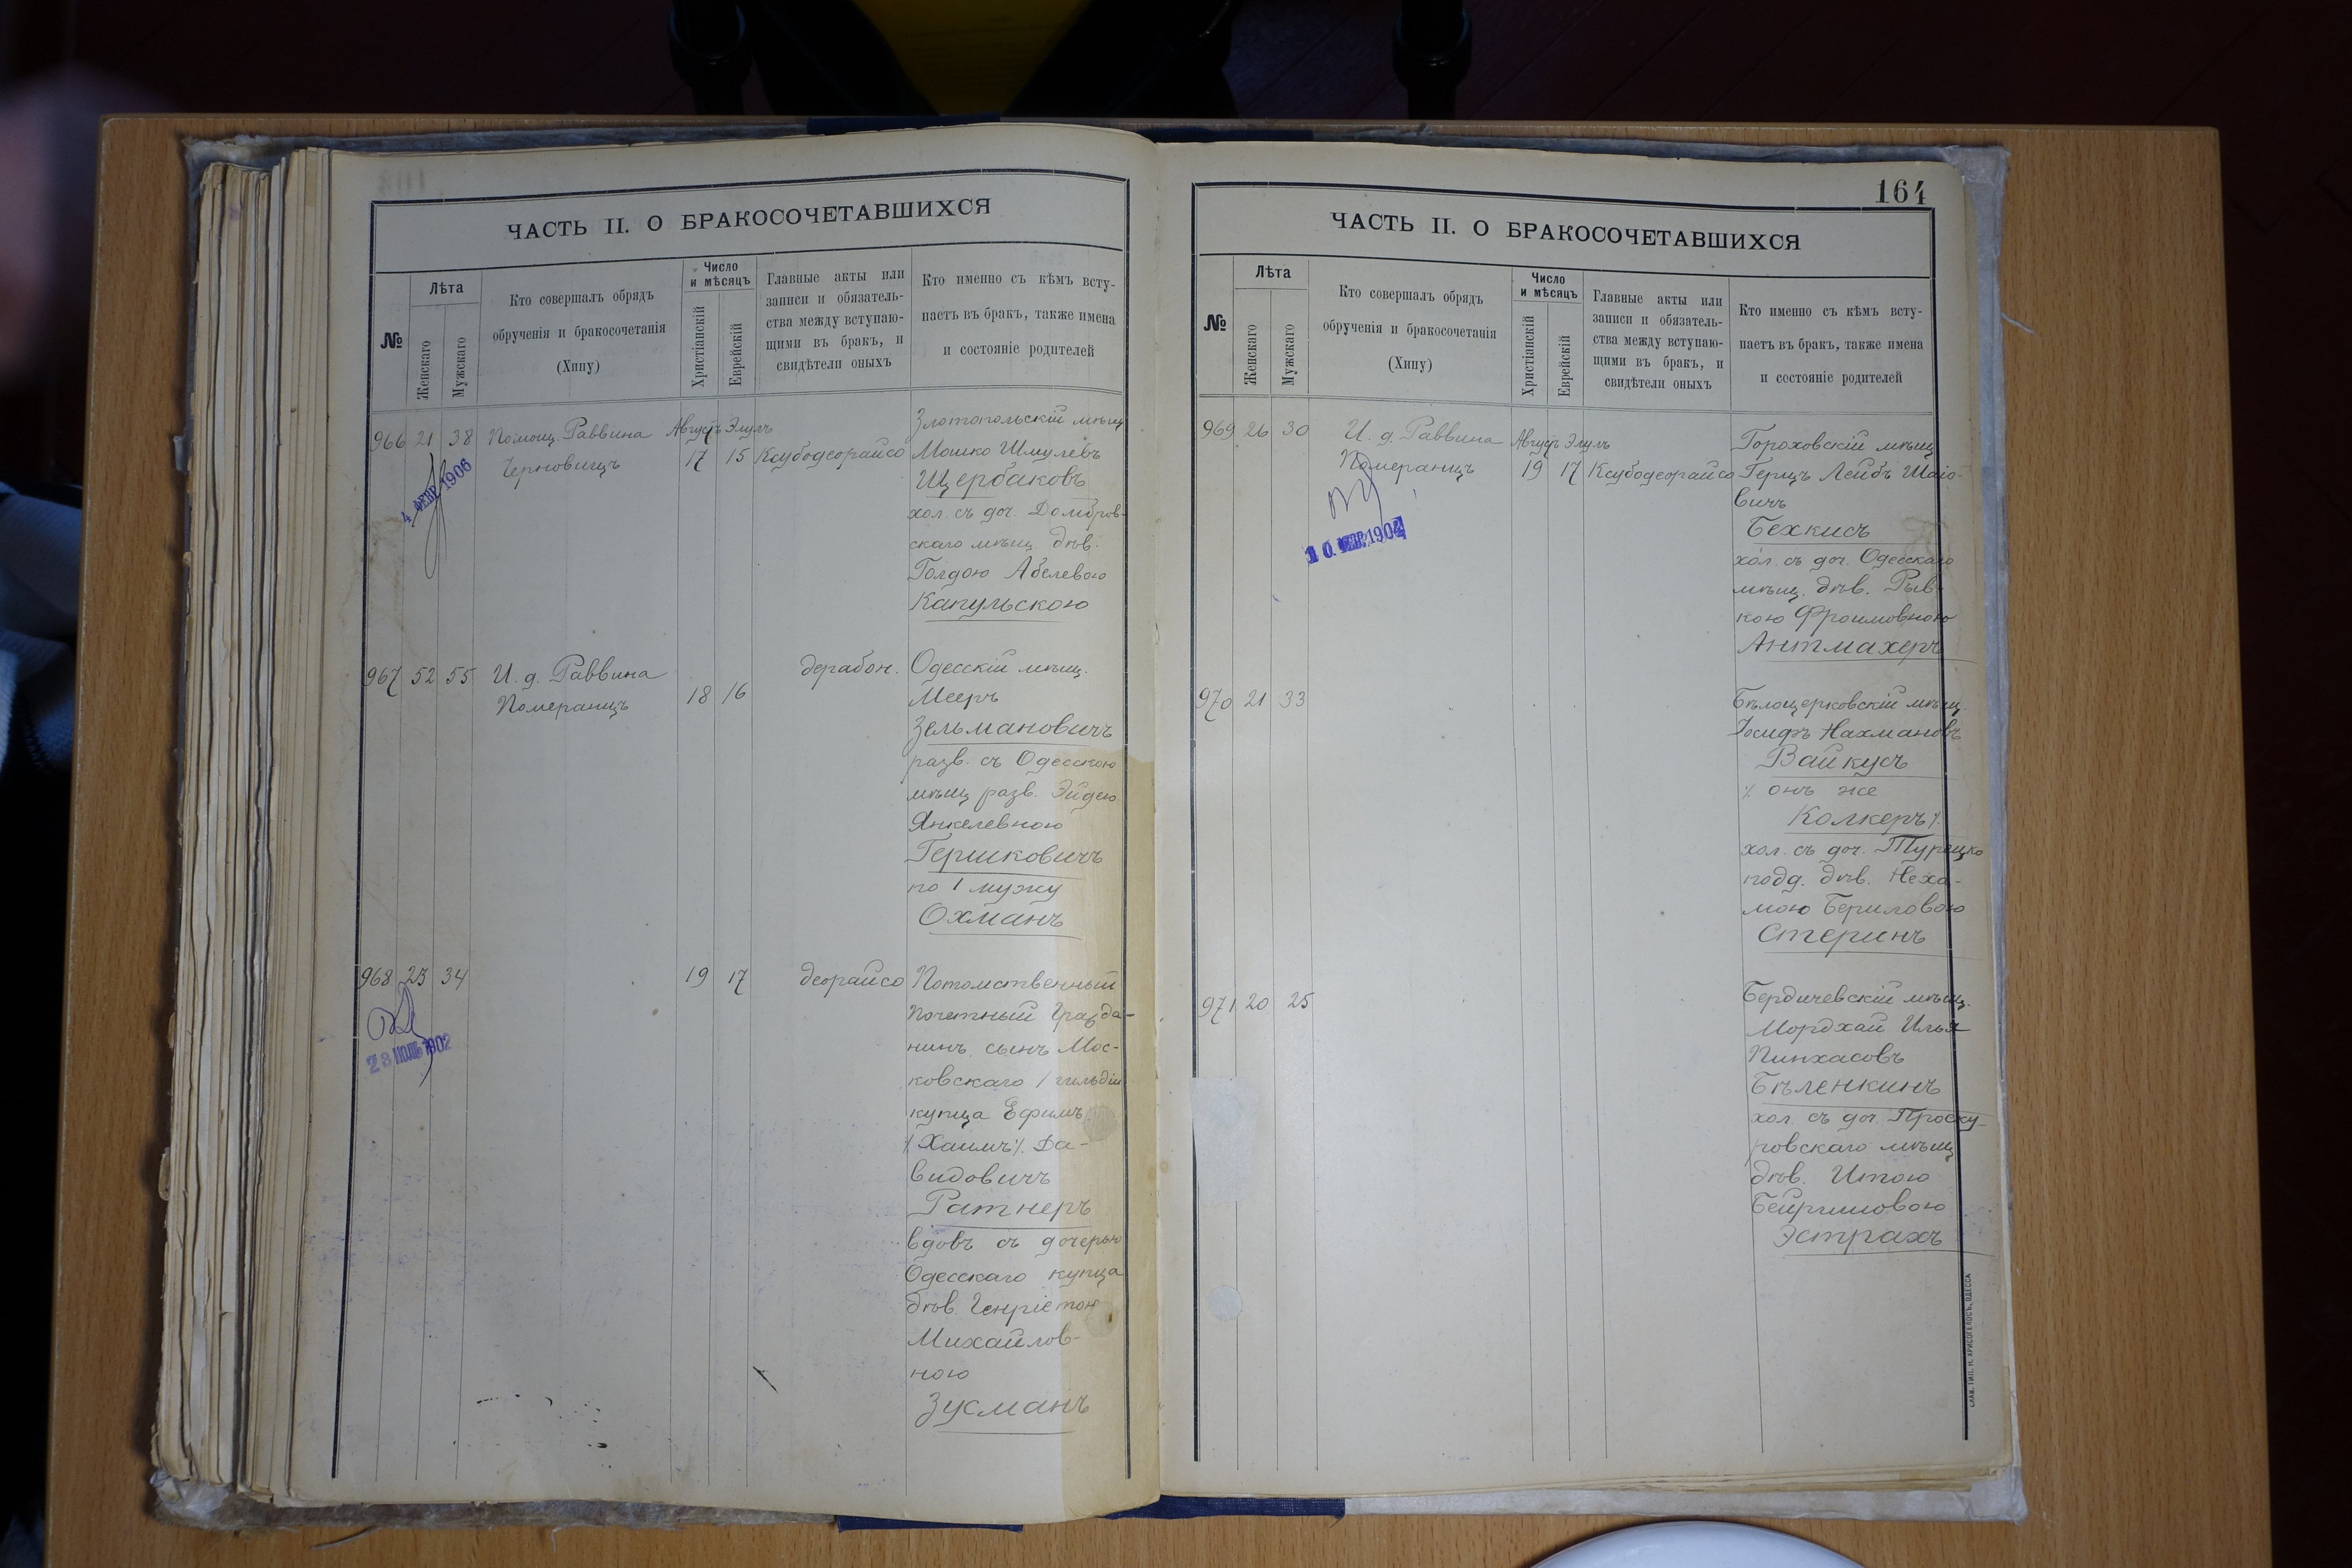 ЧАСТЬ II. О БРАКОСОЧЕТАВШИХСЯ
№
Лѣта
Женскаго
Мужскаго
Кто совершалъ обрядъ
обрученія и бракосочетанія
(Хипу)
Число
и мѣсяцъ
Христіанскій
Еврейскій
Главные акты или
записи и обязатель-
ства между вступаю-
щими въ бракъ, и
свидѣтели оныхъ
Кто именно съ кѣмъ всту-
паетъ въ бракъ, также имена
и состояніе родителей
966 21 38 Помощ. Раввина Августъ Элулъ
Черновицъ 17 15 Ксубодеорайсо
4 ФЕВР. 1906
Златопольскій мѣщ
Мошко Шмулевъ
Щербаковъ
хол. съ доч. Домбров-
скаго мѣщ. дѣв.
Голдою Абелевою
Капульскою
967 52 55 И. д. Раввина
Померанцъ 18 16 дерабон.
Одесскій мѣщ.
Мееръ
Зельмановичъ
разв. съ Одесскою
мѣщ разв. Эйдею
Янкелевною
Гершковичъ
по 1 мужу
Охманъ
968 23 34 19 17 деорайсо
23 ІЮЛЬ 1902
Потомственный
Почетный Гражда-
нинъ, сынъ Мос-
ковскаго 1 гильдіи
купца Ефимъ
/. Хаимъ /. Да-
видовичъ
Ратнеръ
вдовъ съ дочерью
Одесскаго купца
дѣв. Генріетою
Михайлов-
ною
Зусманъ
164
ЧАСТЬ II. О БРАКОСОЧЕТАВШИХСЯ
№
Лѣта
Женскаго
Мужскаго
Кто совершалъ обрядъ
обрученія и бракосочетанія
(Хипу)
Число
и мѣсяцъ
Христіанскій
Еврейскій
Главные акты или
записи и обязатель-
ства между вступаю-
щими въ бракъ, и
свидѣтели оныхъ
Кто именно съ кѣмъ всту-
паетъ въ бракъ, также имена
и состояніе родителей
969 26 30 И. д. Раввина Августъ Элулъ
Померанцъ 19 17 Ксубодеорайсо
10 1904
Гороховскій мѣщ
Герцъ Лейбъ Шаіо-
вичъ
Бехкисъ
хол. съ доч. Одесскаго
мѣщ. дѣв. Рыв-
кою Фроимовною
Антмахеръ
970 21 33
Бѣлоцерковскій мѣщ.
Іосифъ Нахмановъ
Вайкусъ
/. онъ же
Колкеръ /.
хол. съ доч. Турецко
подд. дѣв. Неха-
мою Бериловою
Стеринъ
971 20 25
Бердичевскій мѣщ.
Мордхай Илья
Пинхасовъ
Бѣленкинъ
хол. съ доч. Проску-
ровскаго мѣщ
дѣв. Итою
Бейришовою
Эстрахъ
СЛАВ. ТИП. Н. ХРИСОГЕЛОСЪ, ОДЕССА